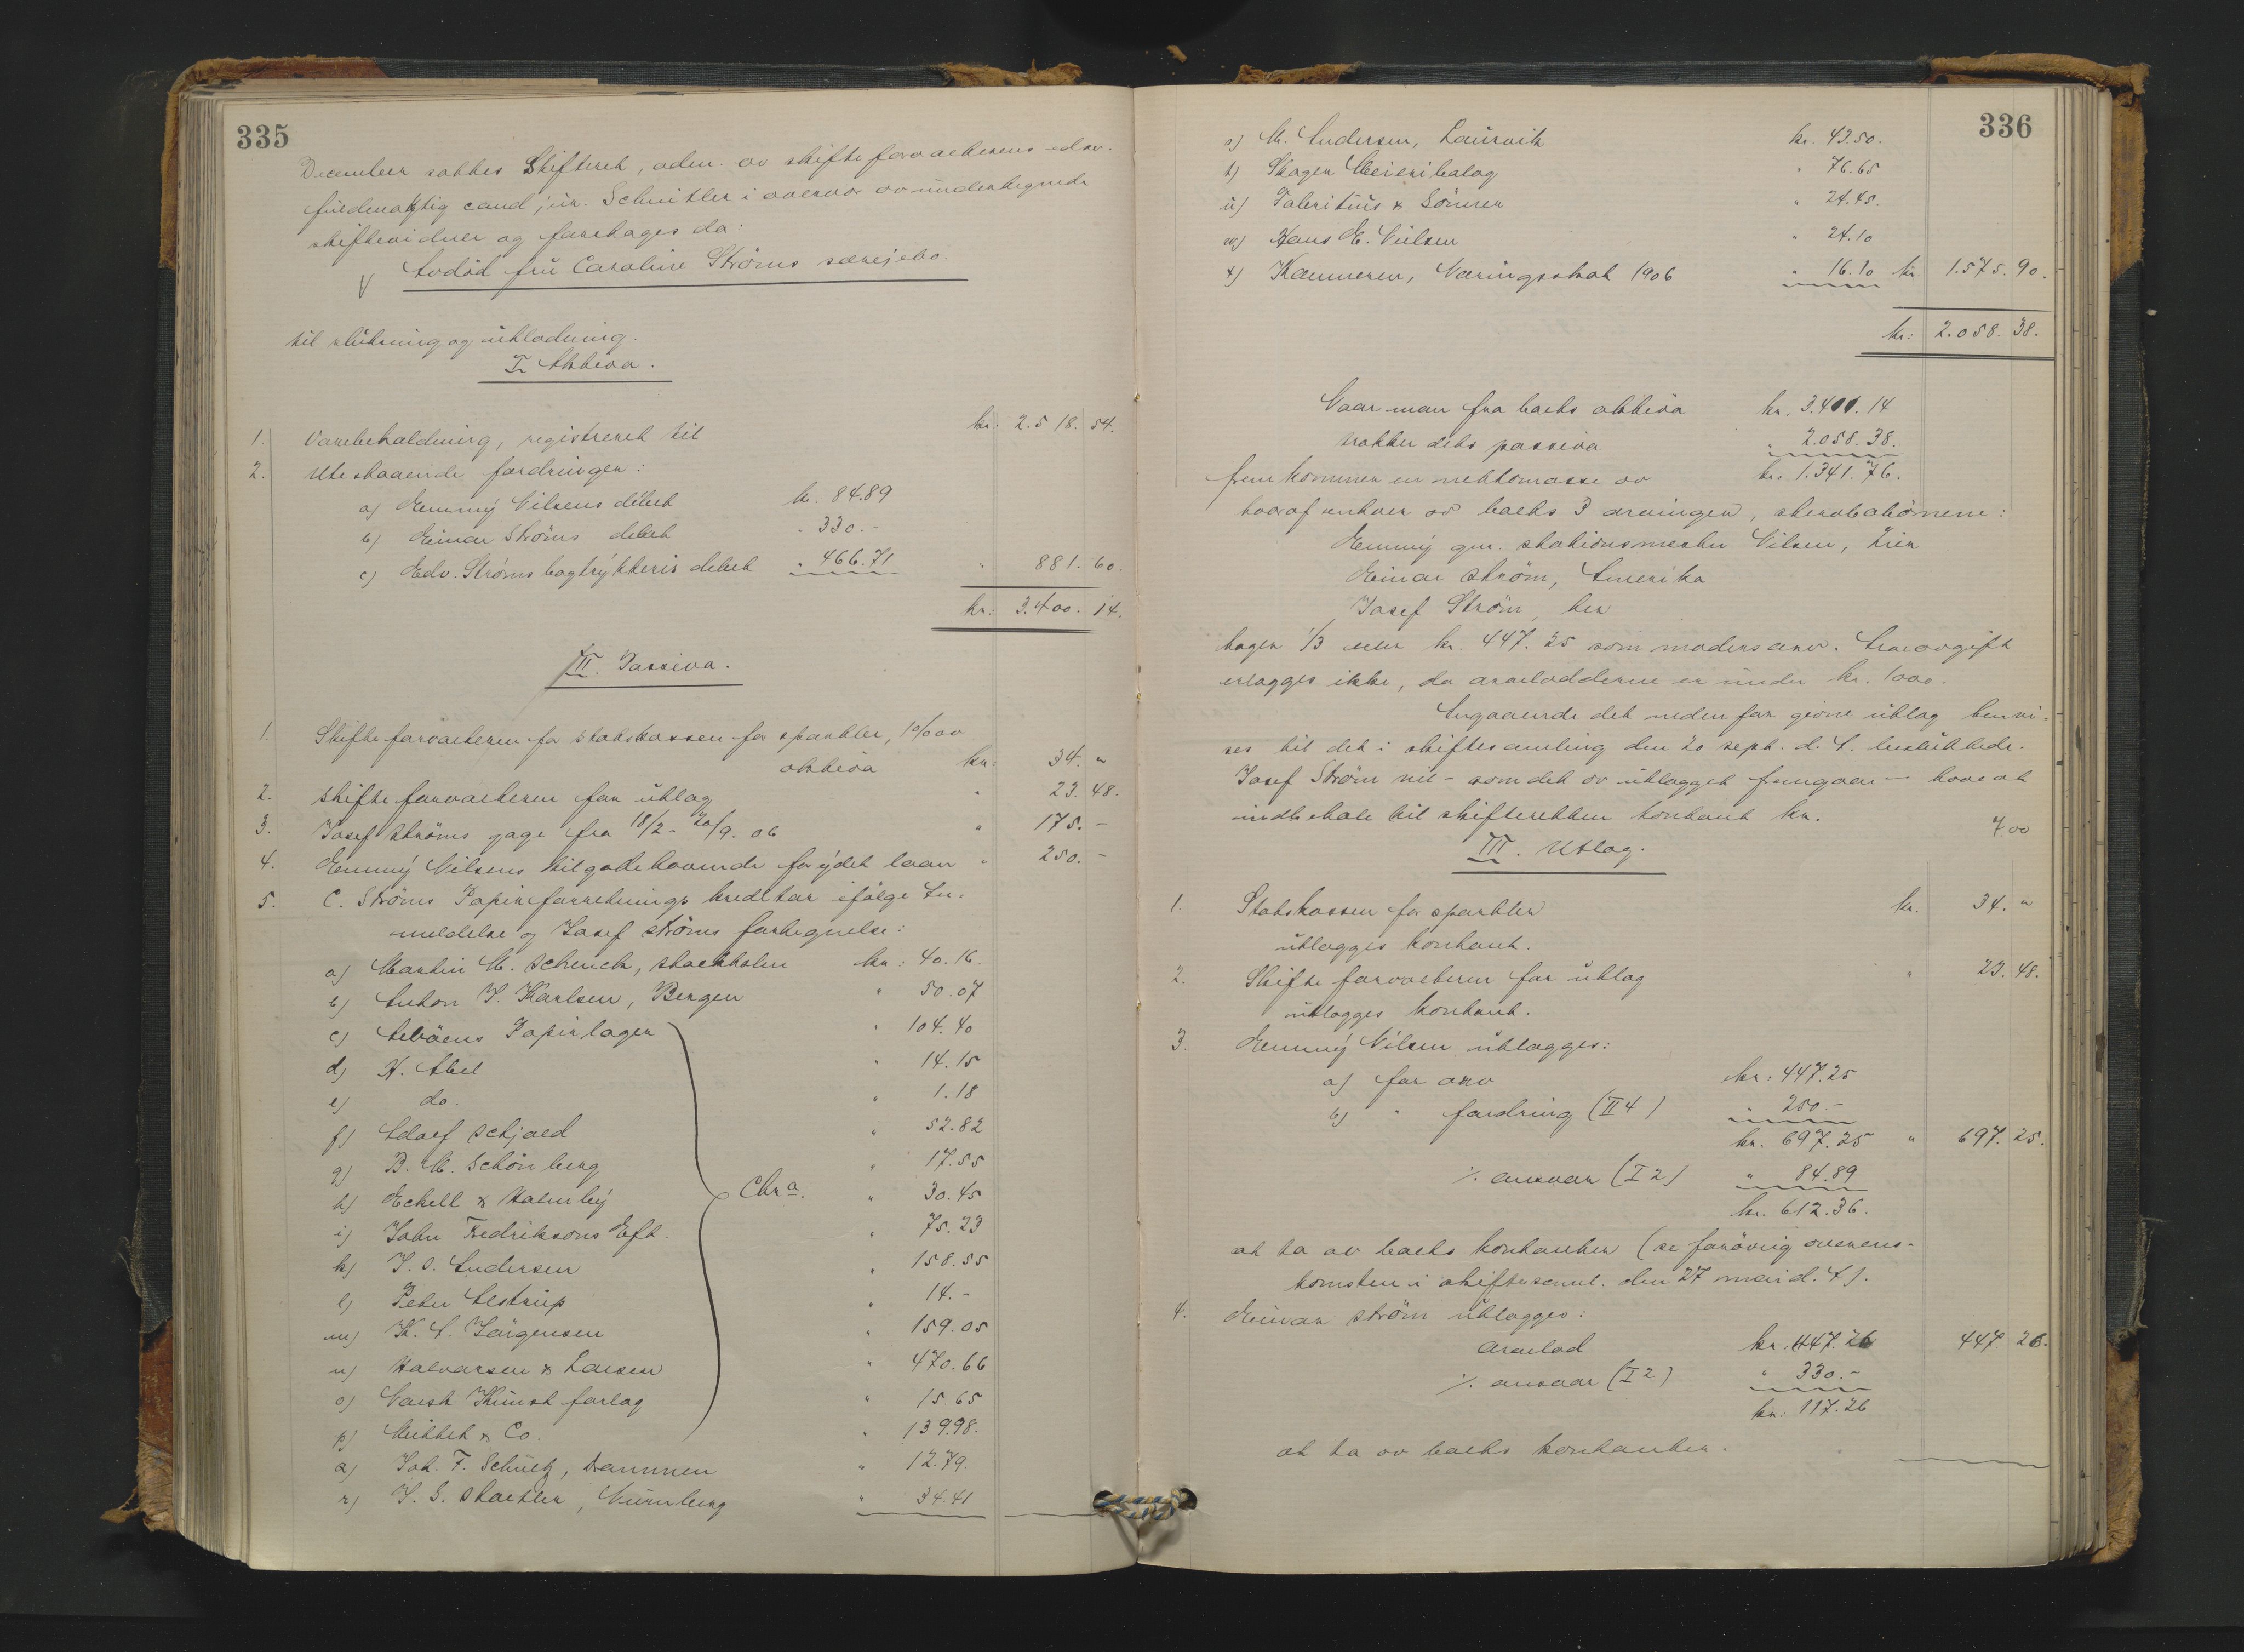 335
December sattes Skifteret, adm. av skifteforvalterens edsv.
fuldmægtig cand. jur. Schnitler i overvær av undertegnede
skiftevidner og foretages da:
Avdød fru Caroline Strøms særejebo.
til slutning og utlodning.
I Aktiva.
1. Varebeholdning, registreret til kr. 2.518.54.
2. Utestaaende fordringer:
a) Emmy Nilsens debet kr. 84.89
b) Einar Strøms debet " 330.-
c) Edv. Strøms bogtrykkeris debet " 466.71 " 881.60.
kr: 3.400.14.
II. Passiva.
1. Skifteforvalteren for statskassen for sportler, 1 % av
aktiva kr: 34. "
2. Skifteforvalteren for utlæg " 23.48.
3. Josef Strøms gage fra 18/2 - 20/9. 06 " 175.-
4. Emmy Nilsens tilgodehavende for ydet laan " 250.-
5. C. Strøms Papirforretnings kreditorer ifølge An-
meldelse og Josef Strøms fortegnelse:
a) Martin M. Schenck, Stockholm kr: 40.16.
b) Anton J. Karlsen, Bergen " 50.07
c) Papirlager " 104.40
d) H. Abel " 14.15
e) do. " 1.18
f) Adolf Schjold " 52.82
g) B. M. Schönberg " 17.55
h) Eckell & Halmby " 30.45
Chr a.
i) John Fredriksons Eft. " 75.23
k) J. O. Andersen " 158.55
l) Peter Alstrup " 14.-
m) K. A. Jørgensen " 159.05
n) Halvorsen & Larsen " 470.66
o) Norsk Kunstforlag " 15.65
p) Mittet & Co. " 139.98.
q) Joh. F. Schultz, Drammen " 12.79.
r) J. S. Staedtler, Nürnberg " 34.41
336
s) M. Andersen, Laurvik kr. 43.50.
t) Skogen Meieribolag " 76.65
u) & Sønner " 24.45.
w) Hans E. Nielsen " 24.10
x) Kæmneren, Næringsskat 1906 " 16.10 kr. 1.575.90.
kr: 2.058.38.
Naar man fra boets aktiva kr. 3.400.14
trækker dets passiva " 2.058.38.
fremkommer en nettomasse av kr. 1.341.76.
hvoraf enhver av boets 3 arvinger, skerobabørnene:
Emmy gm. stationsmester Nilsen, Lier
Einar Strøm, Amerika
Josef Strøm, her
tager 1/3 eller kr. 447.25 som mødrenearv. Arveavgift
erlægges ikke, da arvelodderne er under kr. 1000.
Angaaende det nedenfor givne utlæg henvi-
ses til det i skiftesamling den 20 sept. d. A. besluttede.
Josef Strøm vil - som det av utlægget fremgaar - have at
indbetale til skifteretten kontant kr. 700
III. Utlæg.
1. Statskassen for sportler kr. 34. "
utlægges kontant.
2. Skifteforvalteren for utlæg " 23.48.
utlægges kontant.
3. Emmy Nilsen utlægges:
a) for arv kr: 447.25
b) " fordring (II 4) " 250.-
kr. 697.25 " 697.25.
./. ansvar (I 2) " 84.89
kr. 612.36.
at ta av boets kontanter (se forøvrig overens-
komsten i skiftesaml. den 27 mai d. A).
4. Einar Strøm utlægges:
Arvelod kr. 447.26 447.26.
./. ansvar (I 2) " 330.-
kr: 117.26
at ta av boets kontanter.